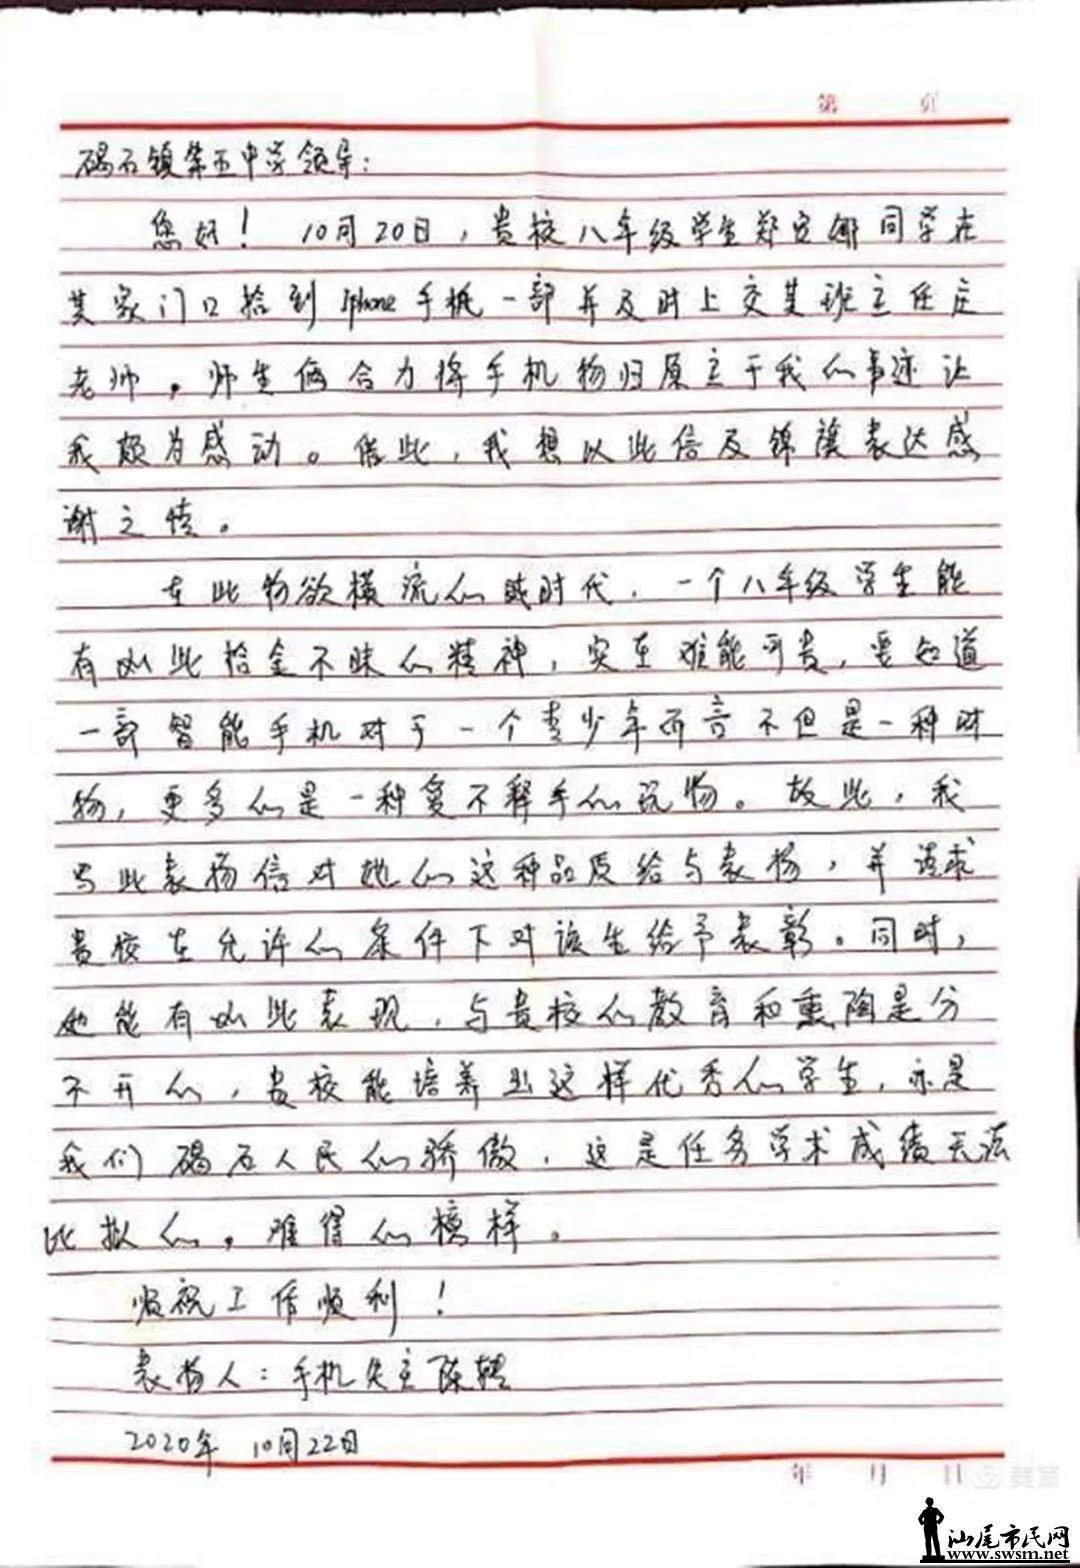 第 页
碣石镇第五中学领导：
您好！10月20日，贵校八年级学生郑安娜同学在
其家门口拾到Iphone手机一部并及时上交其班主任庄
老师。师生俩合力将手机物归原主于我的事迹让
我颇为感动。借此，我想以此信及锦旗表达感
谢之情。
在此物欲横流的时代，一个八年级学生能
有如此拾金不昧的精神，实在难能可贵，要知道
一部智能手机对于一个青少年而言不但是一种财
物，更多的是一种爱不释手的玩物。故此，我
写此表扬信对她的这种品质给与表扬，并请求
贵校在允许的条件下对该生给予表彰。同时，
她能有如此表现，与贵校的教育和熏陶是分
不开的，贵校能培养出这样优秀的学生，亦是
我们碣石人民的骄傲，这是任务学术成绩无法
比拟的，难得的榜样。
顺祝工作顺利！
表扬人：手机失主陈
2020年 10月22日
年 月 日
汕尾市民网
www.swsm.net